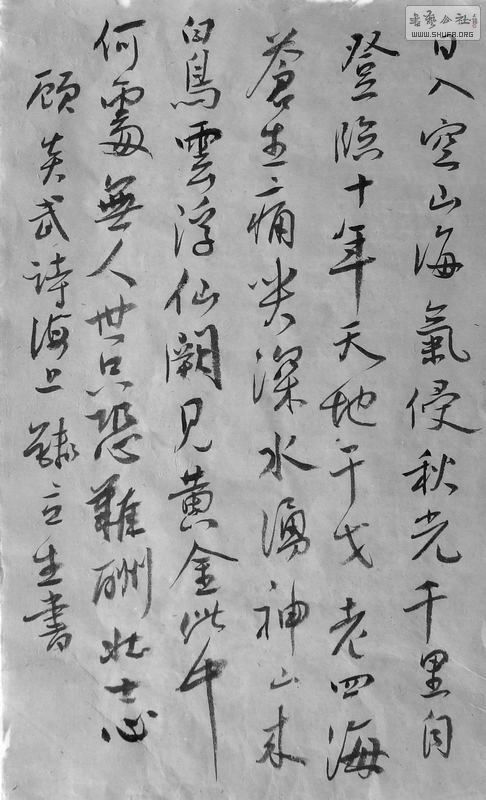 書藝公社
WWW.SHUFA.ORG
日入空山海氣侵秋光千里自
登臨十年天地干戈老四海
蒼生痛哭深水湧神山來
白鳥雲浮仙闕見黃金此中
何處無人世只恐難酬壯士心
顧炎武詩海上 立生書